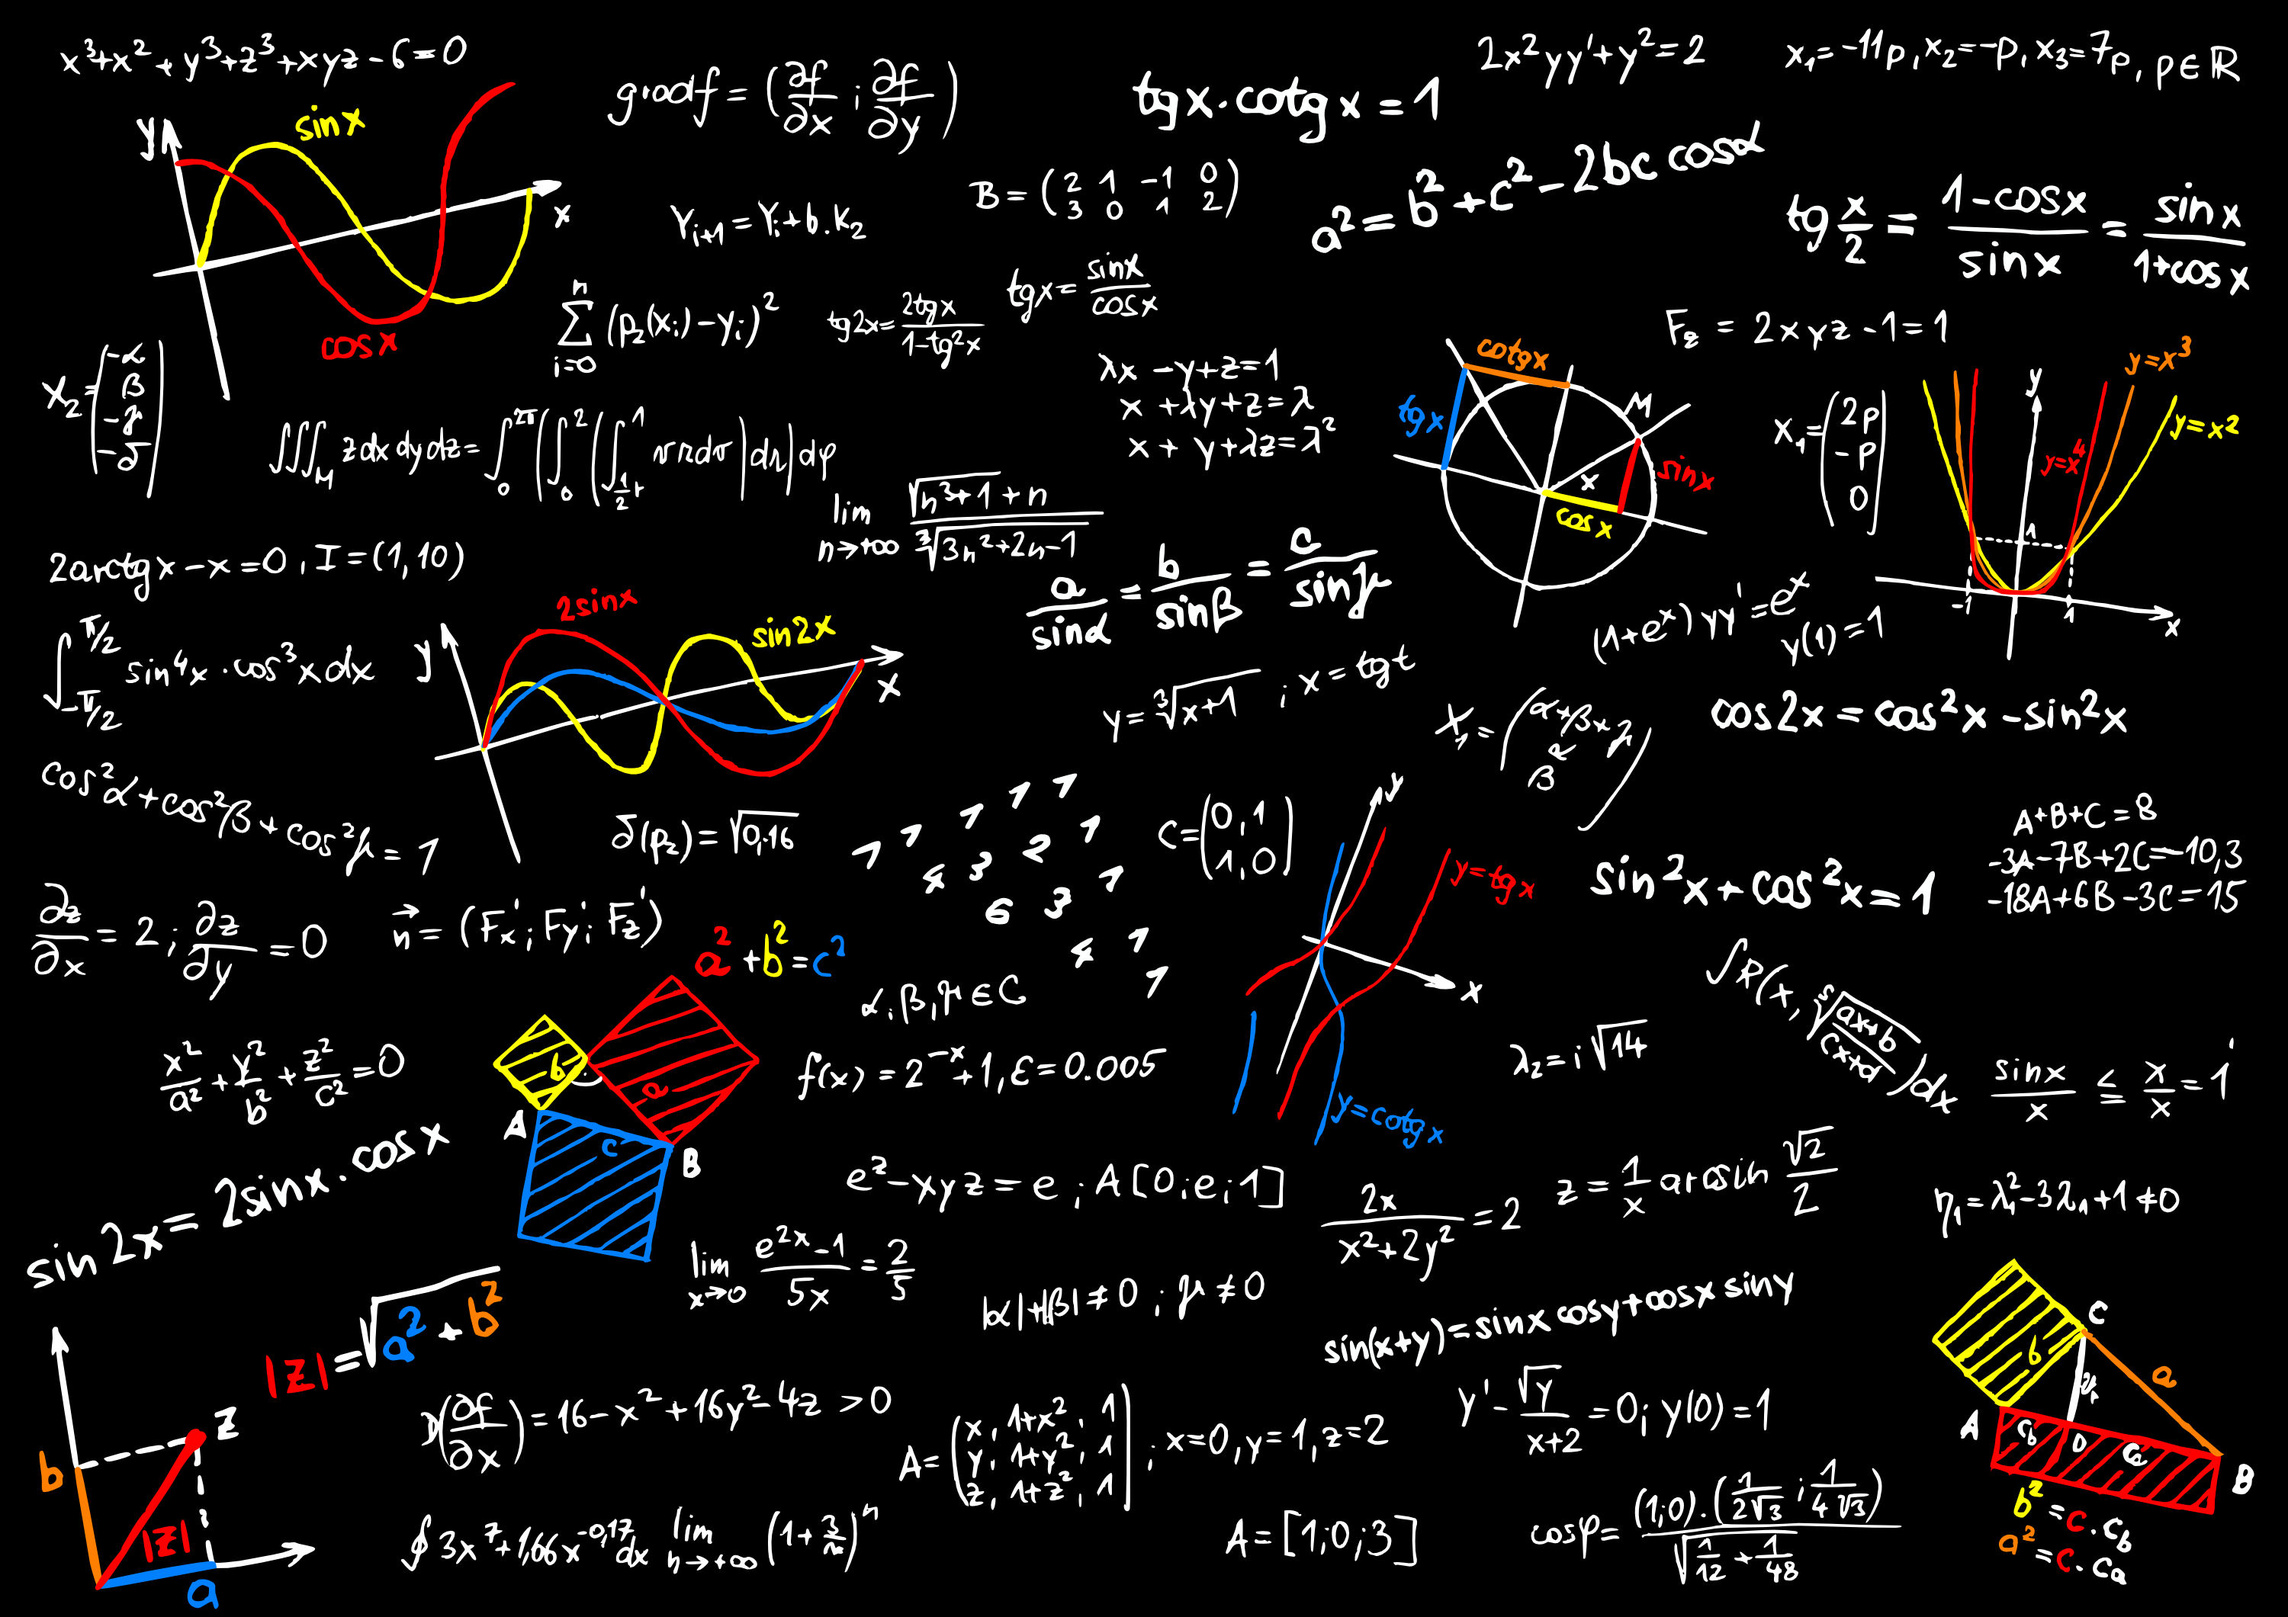 x³+x²+y³+z³+xyz-6=0
gradf = (∂f/∂x ; ∂f/∂y)
tgx·cotgx=1
2x²yy'+y²=2
x₁=-11p, x₂=-p, x₃=7p, p∈ℝ
y
sinx
x
cosx
Yᵢ₊₁=Yᵢ+b.K₂
B = (2 1 -1 0
3 0 1 2)
a²=b²+c²-2bc cosα
tg x/2 = (1-cosx)/sinx = sinx/(1+cosx)
X₂= (-α
β
-γ
-δ)
∑ i=0 n (p₂(xᵢ)-yᵢ)²
tg2x= 2tgx/(1-tg²x)
tgx= sinx/cosx
F_z = 2xyz-1=1
λx-y+z=1
x+λy+z=λ
x+y+λz=λ²
cotgx
tgx
M
sinx
x
cosx
X₁= (2p
-p
0)
y
y=x³
y=x²
y=x⁴
1
-1
1
x
∫∫∫_M zdxdydz= ∫₀^2π (∫₀² (∫_½r ¹ vrdv|dr|dφ
lim n→+∞ (√(n³+1)+n)/∛(3n²+2n-1)
2arctgx-x=0, I=(1,10)
a/sinα = b/sinβ = c/sinγ
(1+eˣ)yy'=eˣ
y(1)=1
∫_-π/2^π/2 sin⁴x·cos³xdx
y
2sinx
sin2x
x
y=∛(x+1) ; x=tgt
X₁= (α+β+γ
α
β)
cos2x=cos²x-sin²x
cos²α+cos²β+cos²γ=1
δ(p₂)=√0,16
1 1 1 1 1
4 3 2 1
6 3 1
4 1
1
C= (0,1
1,0)
y
y=tgx
x
y=cotgx
A+B+C=8
-3A-7B+2C=-10,3
-18A+6B-3C=15
sin²x+cos²x=1
∂z/∂x=2 ; ∂z/∂y=0
n⃗=(Fx'; Fy; Fz')
a²+b²=c²
b
a
A
c
B
α,β,γ∈C
∫R(x, ˢ√((ax+b)/(cx+d)))dx
x²/a²+y²/b²+z²/c²=0
f(x)=2⁻ˣ+1, ε=0.005
λ₂=i√14
sinx/x ≦ x/x=1
sin2x=2sinx·cosx
eᶻ-xyz=e ; A[0;e;1]
2x/(x²+2y²)=2
z=1/x arcsin √2/2
η₁=λ₁²-3λ₁+1≠0
lim x→0 (e²ˣ-1)/5x = 2/5
|α|+|β|≠0 ; γ≠0
sin(x+y)=sinx cosy+cosx siny
|z|=√(a²+b²)
z
b
|z|
a
D(∂f/∂x)=16-x²+16y²-4z>0
A= (x, 1+x², 1
y, 1+y², 1
z, 1+z², 1) ; x=0, y=1, z=2
y'-√y/(x+2)=0; y(0)=1
C
b
a
A
c_b
D
c_a
B
b²=c·c_b
a²=c·c_a
∮3x⁷+1,66x^-0,17dx
lim n→+∞ (1+3/n)ⁿ
A=[1;0;3]
cosφ= (1;0).(1/2√3 ; 1/4√3)/√(1/12+1/48)